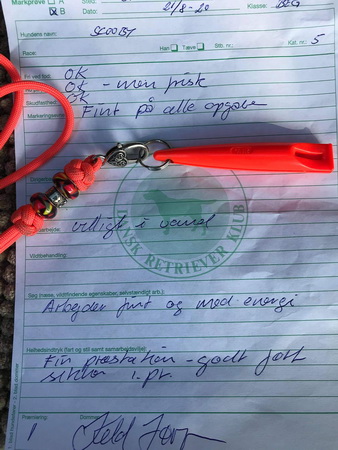 Markprøve A
B
Dato
21/8-20
Klasse
BEG
Hundens navn
SCOOBY
Race:
Han Tæve Stb. nr.: Kat. nr. 5
Ro ved fod: OK
OK - men frisk
Skudfasthed: OK
Markeringsevne: Fint på alle opgaver
Vandarbejde: villigt i vand
DANSK RETRIEVER KLUB
Vildtbehandling:
Søg (næse, vildtfindende egenskaber, selvstændigt arb.)
Arbejder fint og med energi
Helhedsindtryk (fart og stil samt samarbejdsvilje):
Fin præstation - godt ført
sikker 1. pr.
Præmiering: Dommer
1